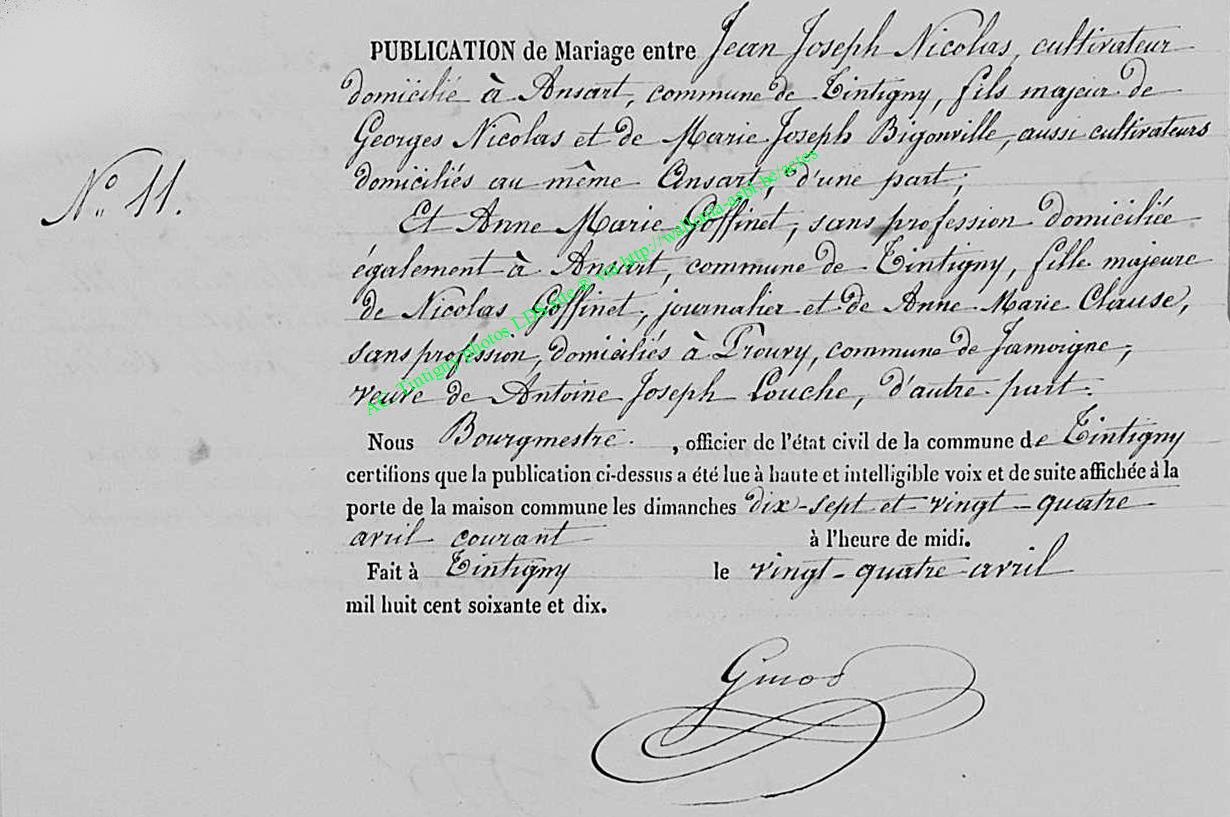 PUBLICATION de Mariage entre Jean Joseph Nicolas, cultivateur
domicilié à Ansart, commune de Tintigny, fils majeur de
Georges Nicolas et de Marie Joseph Bigonville, aussi cultivateurs
domiciliés au même Ansart, d'une part;
N.º 11.
Et Anne Marie Goffinet, sans profession domiciliée
également à Ansart, commune de Tintigny, fille majeure
de Nicolas Goffinet, journalier et de Anne Marie Clause,
sans profession, domiciliés à Prouvy, commune de Jamoigne,
veuve de Antoine Joseph Louche, d'autre part.
Nous Bourgmestre , officier de l'état civil de la commune de Tintigny
certifions que la publication ci-dessus a été lue à haute et intelligible voix et de suite affichée à la
porte de la maison commune les dimanches dix-sept et vingt-quatre
avril courant à l'heure de midi.
Fait à Tintigny le vingt-quatre avril
mil huit cent soixante et dix.
Tintigny photos LDS via http://wallonia-asbl.be/actes